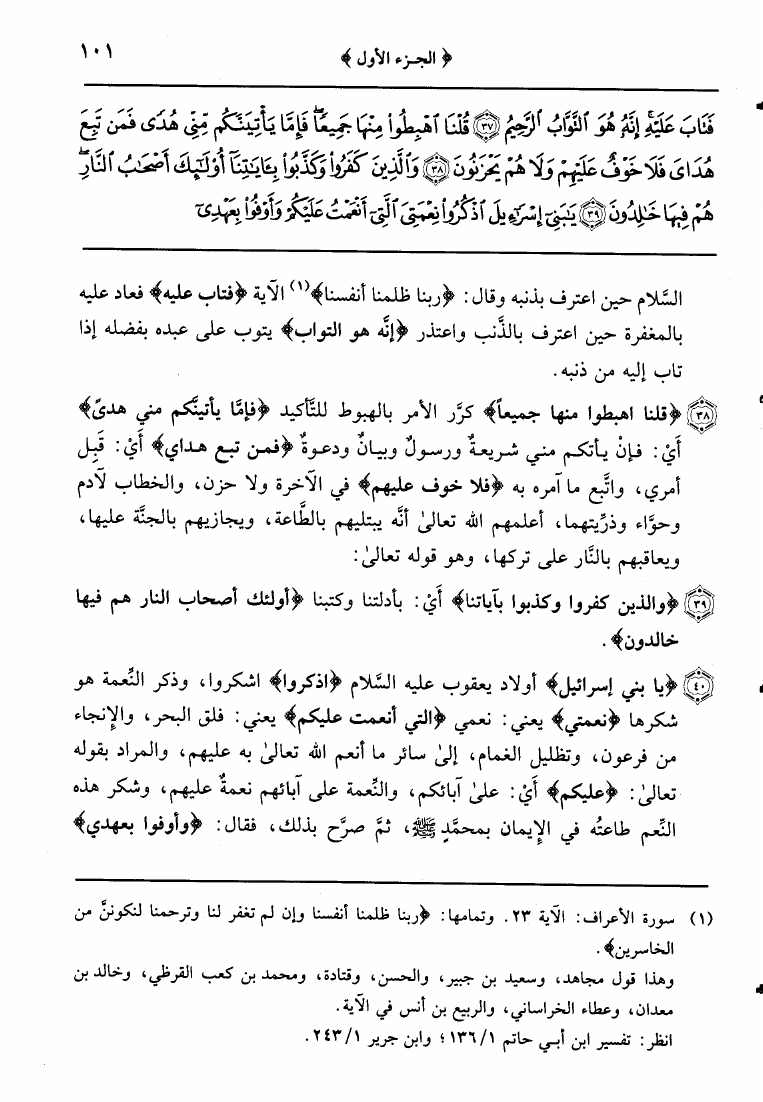 ﴿ الجزء الأول ﴾ ١٠١
فَتَابَ عَلَيْهِ إِنَّهُ هُوَ التَّوَّابُ الرَّحِيمُ ٣٧ قُلْنَا اهْبِطُوا مِنْهَا جَمِيعًا فَإِمَّا يَأْتِيَنَّكُم مِّنِّي هُدًى فَمَن تَبِعَ
هُدَايَ فَلَا خَوْفٌ عَلَيْهِمْ وَلَا هُمْ يَحْزَنُونَ ٣٨ وَالَّذِينَ كَفَرُوا وَكَذَّبُوا بِـَٔايَـٰتِنَا أُولَـٰئِكَ أَصْحَـٰبُ النَّارِ
هُمْ فِيهَا خَـٰلِدُونَ ٣٩ يَـٰبَنِي إِسْرَٰٓءِيلَ اذْكُرُوا نِعْمَتِيَ الَّتِي أَنْعَمْتُ عَلَيْكُمْ وَأَوْفُوا بِعَهْدِي
السَّلام حين اعترف بذنبه وقال: ﴿ربنا ظلمنا أنفسنا﴾(١) الآية ﴿فتاب عليه﴾ فعاد عليه
بالمغفرة حين اعترف بالذَّنب واعتذر ﴿إنَّه هو التواب﴾ يتوب على عبده بفضله إذا
تاب إليه من ذنبه.
٣٨ ﴿قلنا اهبطوا منها جميعاً﴾ كرَّر الأمر بالهبوط للتَّأكيد ﴿فإمَّا يأتينَّكم مني هدىً﴾
أيْ: فإنْ يأتكم مني شريعةٌ ورسولٌ وبيانٌ ودعوةٌ ﴿فمن تبع هداي﴾ أيْ: قَبِل
أمري، واتَّبع ما آمره به ﴿فلا خوف عليهم﴾ في الآخرة ولا حزن، والخطاب لآدم
وحوَّاء وذرِّيتهما، أعلمهم الله تعالىٰ أنَّه يبتليهم بالطَّاعة، ويجازيهم بالجنَّة عليها،
ويعاقبهم بالنَّار على تركها، وهو قوله تعالىٰ:
٣٩ ﴿والذين كفروا وكذبوا بآياتنا﴾ أيْ: بأدلتنا وكتبنا ﴿أولئك أصحاب النار هم فيها
خالدون﴾.
٤٠ ﴿يا بني إسرائيل﴾ أولاد يعقوب عليه السَّلام ﴿اذكروا﴾ اشكروا، وذكر النِّعمة هو
شكرها ﴿نعمتي﴾ يعني: نعمي ﴿التي أنعمت عليكم﴾ يعني: فلق البحر، والإِنجاء
من فرعون، وتظليل الغمام، إلىٰ سائر ما أنعم الله تعالىٰ به عليهم، والمراد بقوله
تعالىٰ: ﴿عليكم﴾ أيْ: علىٰ آبائكم، والنِّعمة على آبائهم نعمةٌ عليهم، وشكر هذه
النِّعم طاعتُه في الإِيمان بمحمَّدٍ ﷺ، ثمَّ صرَّح بذلك، فقال: ﴿وأوفوا بعهدي﴾
(١) سورة الأعراف: الآية ٢٣. وتمامها: ﴿ربنا ظلمنا أنفسنا وإن لم تغفر لنا وترحمنا لنكوننَّ من
الخاسرين﴾.
وهذا قول مجاهد، وسعيد بن جبير، والحسن، وقتادة، ومحمد بن كعب القرظي، وخالد بن
معدان، وعطاء الخراساني، والربيع بن أنس في الآية.
انظر: تفسير ابن أبي حاتم ١٣٦/١؛ وابن جرير ٢٤٣/١.